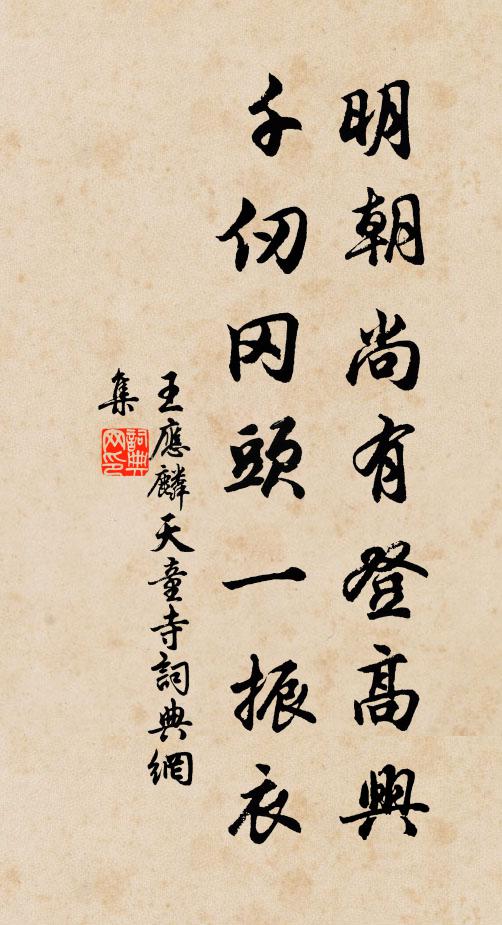 明朝尚有登高興
千仞冈頭一振衣
王應麟天童寺詞典網
集
詞典
网印